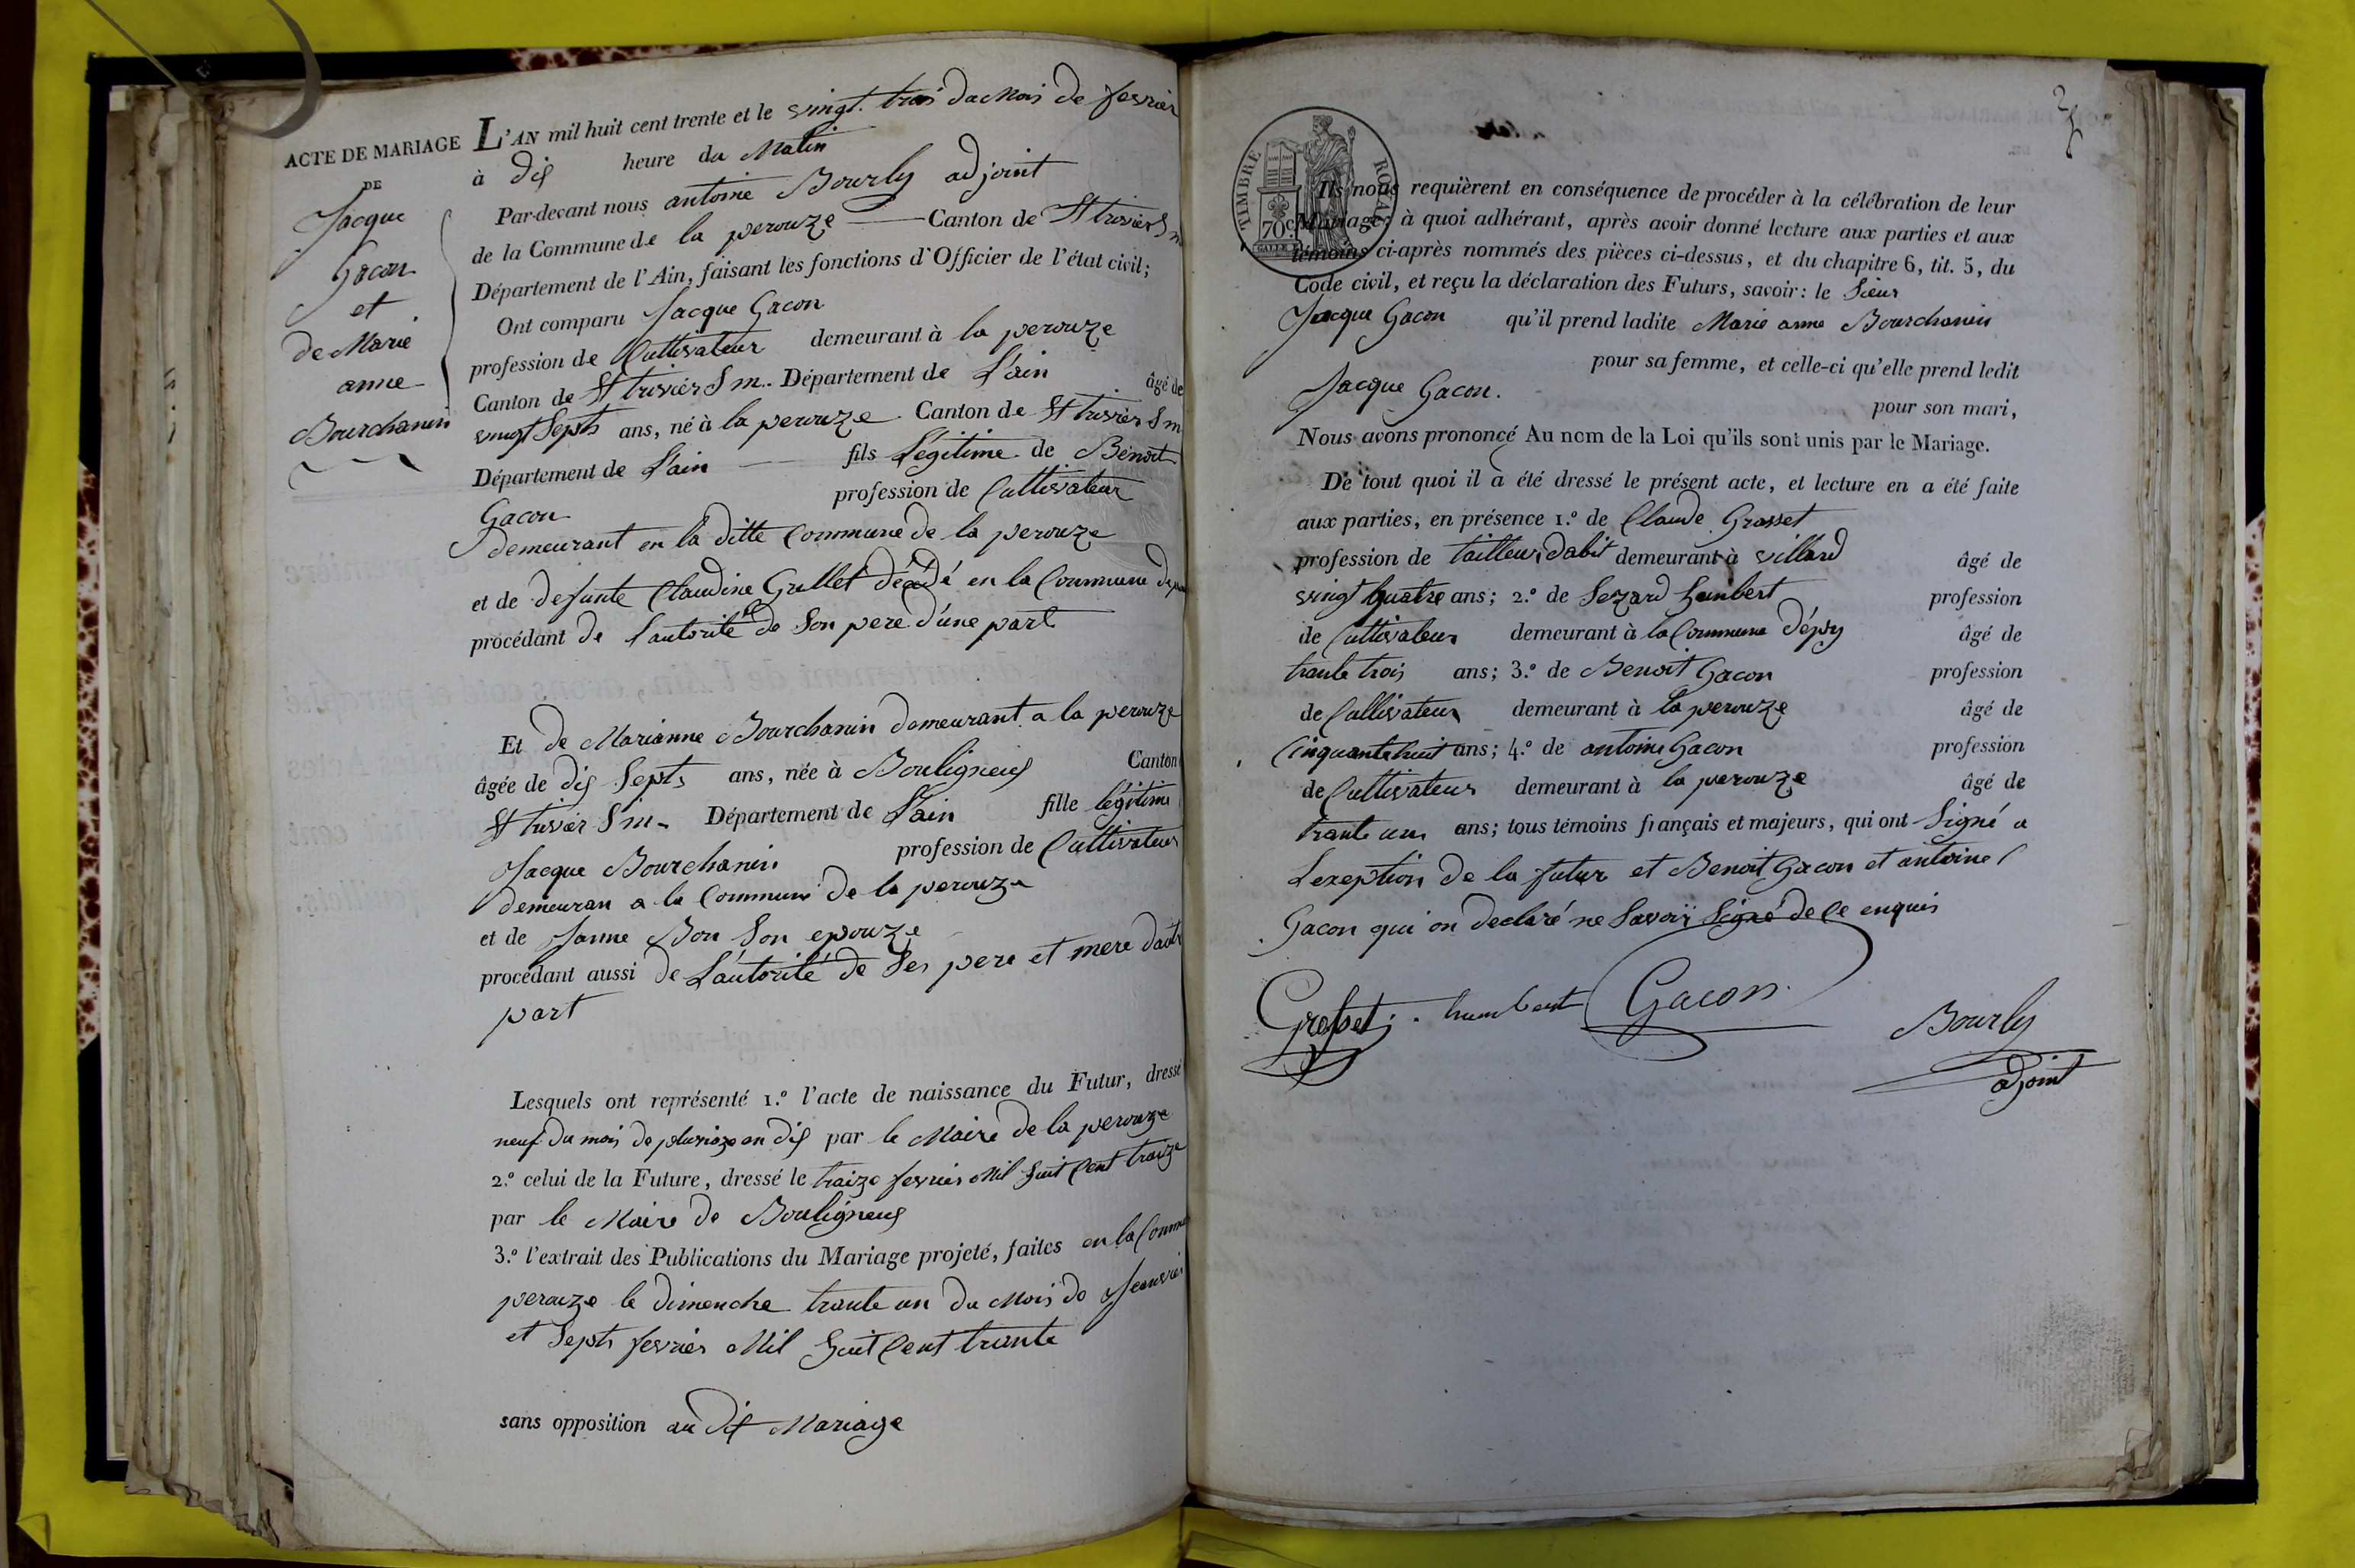 ACTE DE MARIAGE
DE
Jacque
Gacon
et
de Marie
anne
Bourchanin
L'AN mil huit cent trente et le vingt trois du Mois de fevrier
à dix heure du Matin
Par-devant nous antoine Bourly adjoint
de la Commune de la perouze Canton de St trivier S m
Département de l'Ain, faisant les fonctions d'Officier de l'état civil;
Ont comparu Jacque Gacon
profession de Cultivateur demeurant à la perouze
Canton de St trivier S m. Département de L'ain âgé de
vingt Septs ans, né à la perouze Canton de St trivier S m
Département de L'ain fils Légitime de Benoit
Gacon profession de Cultivateur
demeurant en la ditte Commune de la perouze
et de defunte Claudine Grillet décédé en la Commune
procédant de L'autorité de Son pere d'une part
Et de Marianne Bourchanin demeurant a la perouze
âgée de dix Septs ans, née à Bouligneux Canton
St trivier S m. Département de L'ain fille légitime
Jacque Bourchanin profession de Cultivateur
demeuran a la Commune de la perouze
et de Janne Bon Son epouze
procédant aussi de L'autorité de Ses pere et mere d'autre
part
Lesquels ont représenté 1.º l'acte de naissance du Futur, dressé
neuf du mois de pluvioze an dix par le Maire de la perouze
2.º celui de la Future, dressé le traize fevrier Mil huit Cent traize
par le Maire de Bouligneux
3.º l'extrait des Publications du Mariage projeté, faites en la Commune
perouze le dimenche trante un du Mois de Jeanvier
et Septs fevrier Mil huit Cent trante
sans opposition au dit Mariage
TIMBRE ROYAL
70c
Ils nous requièrent en conséquence de procéder à la célébration de leur
Mariage; à quoi adhérant, après avoir donné lecture aux parties et aux
témoins ci-après nommés des pièces ci-dessus, et du chapitre 6, tit. 5, du
Code civil, et reçu la déclaration des Futurs, savoir: le Sieur
Jacque Gacon qu'il prend ladite Marie anne Bourchanin
pour sa femme, et celle-ci qu'elle prend ledit
Jacque Gacon. pour son mari,
Nous avons prononcé Au nom de la Loi qu'ils sont unis par le Mariage.
De tout quoi il a été dressé le présent acte, et lecture en a été faite
aux parties, en présence 1.º de Claude Grosset
profession de tailleur dabit demeurant à villard âgé de
vingt quatre ans; 2.º de Sezard humbert profession
de Cultivateur demeurant à la Commune d'épsy âgé de
trante trois ans; 3.º de Benoit Gacon profession
de Cultivateur demeurant à la perouze âgé de
Cinquante huit ans; 4.º de antoine Gacon profession
de Cultivateur demeurant à la perouze âgé de
trante un ans; tous témoins français et majeurs, qui ont Signé a
Lexeption de la futur et Benoit Gacon et antoine
Gacon qui on declaré ne Savoir Signé de Ce enquis
Grosset humbert Gacon Bourly
adjoint